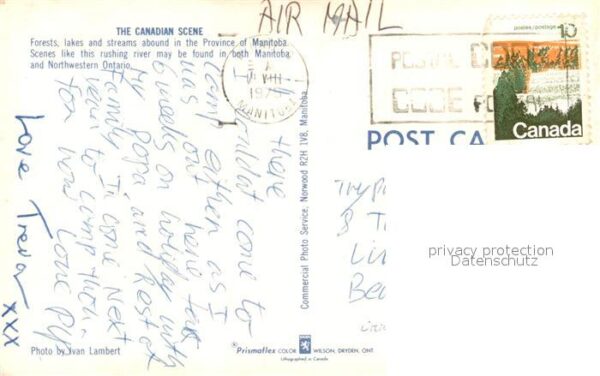 AIR MAIL
THE CANADIAN SCENE
Forests, lakes and streams abound in the Province of Manitoba.
Scenes like this rushing river may be found in both Manitoba
and Northwestern Ontario.
VIII
197
MANITOBA
POSTAL
CODE
postes/postage
10
Canada
POST CA
Hi there
couldnt come to
camp either as I
was out here for
6 weeks on holiday with
My Popa and Rest of
family I'm come Next
year to camp then.
for now Love
Love Trevor
xxx
Commercial Photo Service, Norwood R2H 1V8, Manitoba
8 T
Li
Be
privacy protection
Datenschutz
Photo by Ivan Lambert
Prismaflex COLOR WILSON, DRYDEN, ONT
Lithographed in Canada